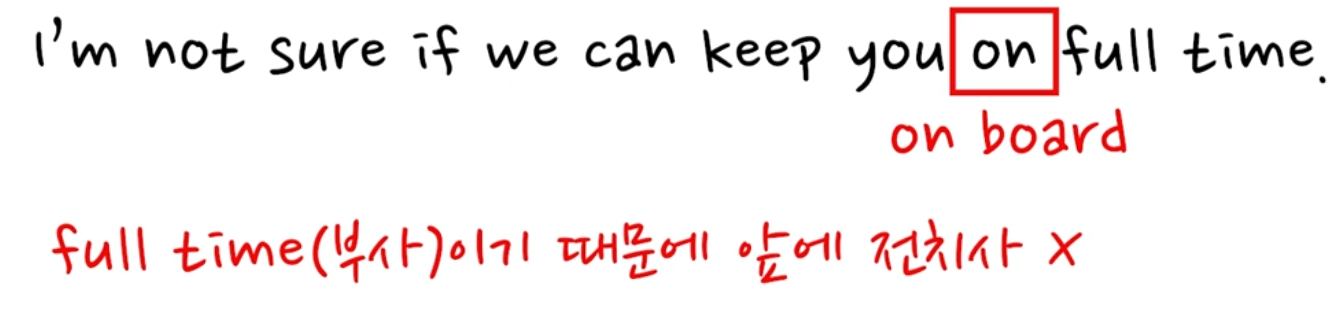 I'm not sure if we can keep you on full time.
on board
full time(부사)이기 때문에 앞에 전치사 X